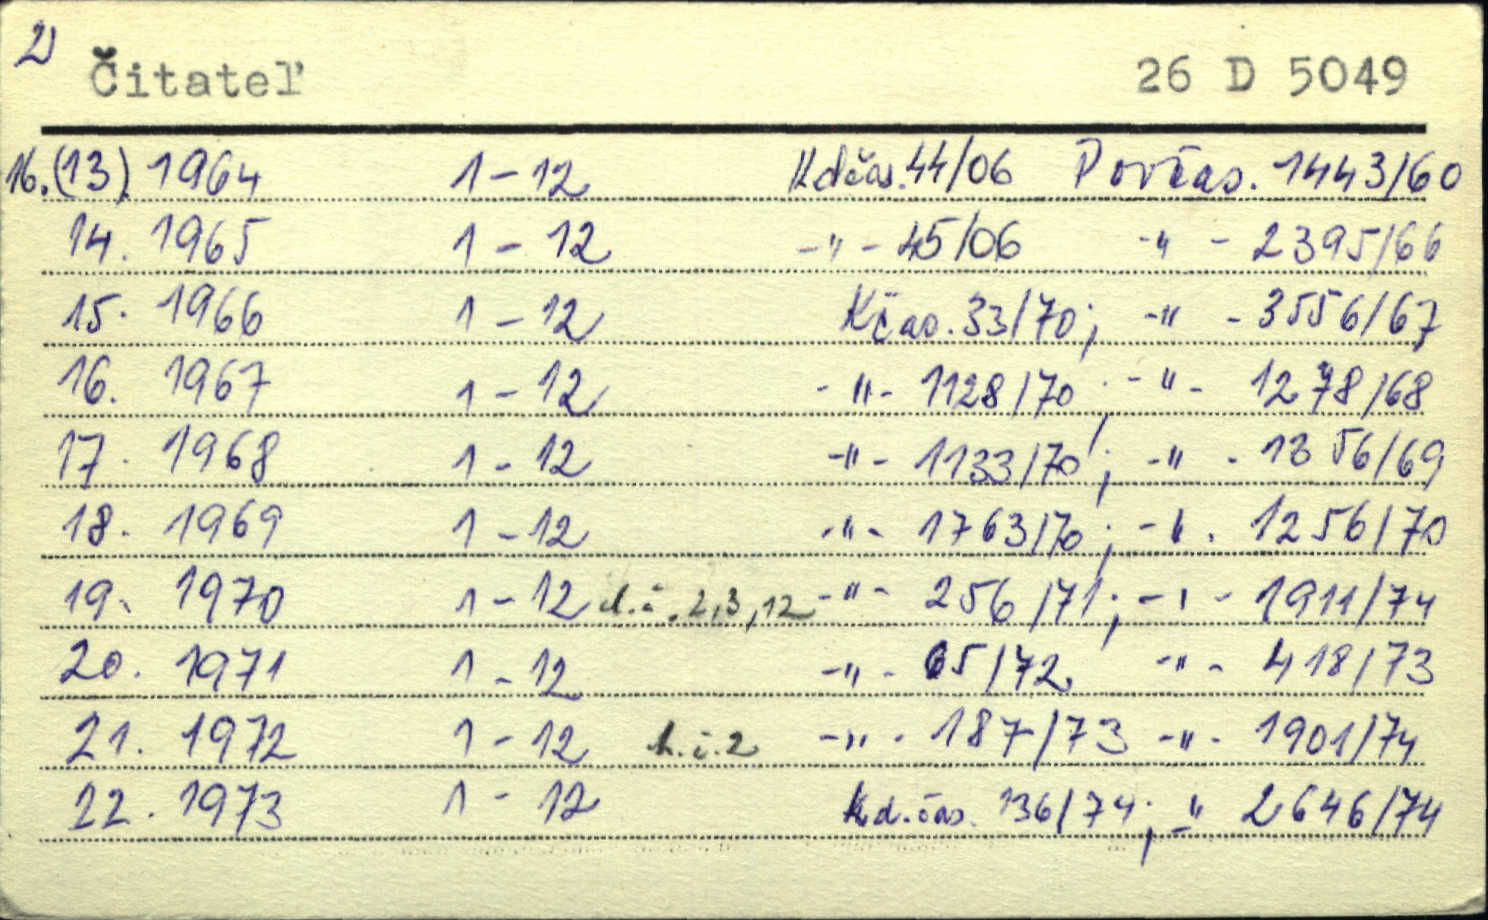 2)
Čitateľ 26 D 5049
16.(13) 1964 1-12 Kdčas.44/06 Povčas. 1443/60
14. 1965 1-12 -"- 45/06 -"- 2395/66
15. 1966 1-12 Kčas.33/70; -"- 3556/67
16. 1967 1-12 -"- 1128/70 -"- 1278/68
17. 1968 1-12 -"- 1133/70; -"- 1356/69
18. 1969 1-12 -"- 1763/70; -"- 1256/70
19. 1970 1-12 d.č.2,3,12 -"- 256/71; -"- 1911/74
20. 1971 1-12 -"- 65/72 -"- 418/73
21. 1972 1-12 č.2 -"- 187/73 -"- 1901/74
22. 1973 1-12 Kd.čas. 136/74; -" 2646/74